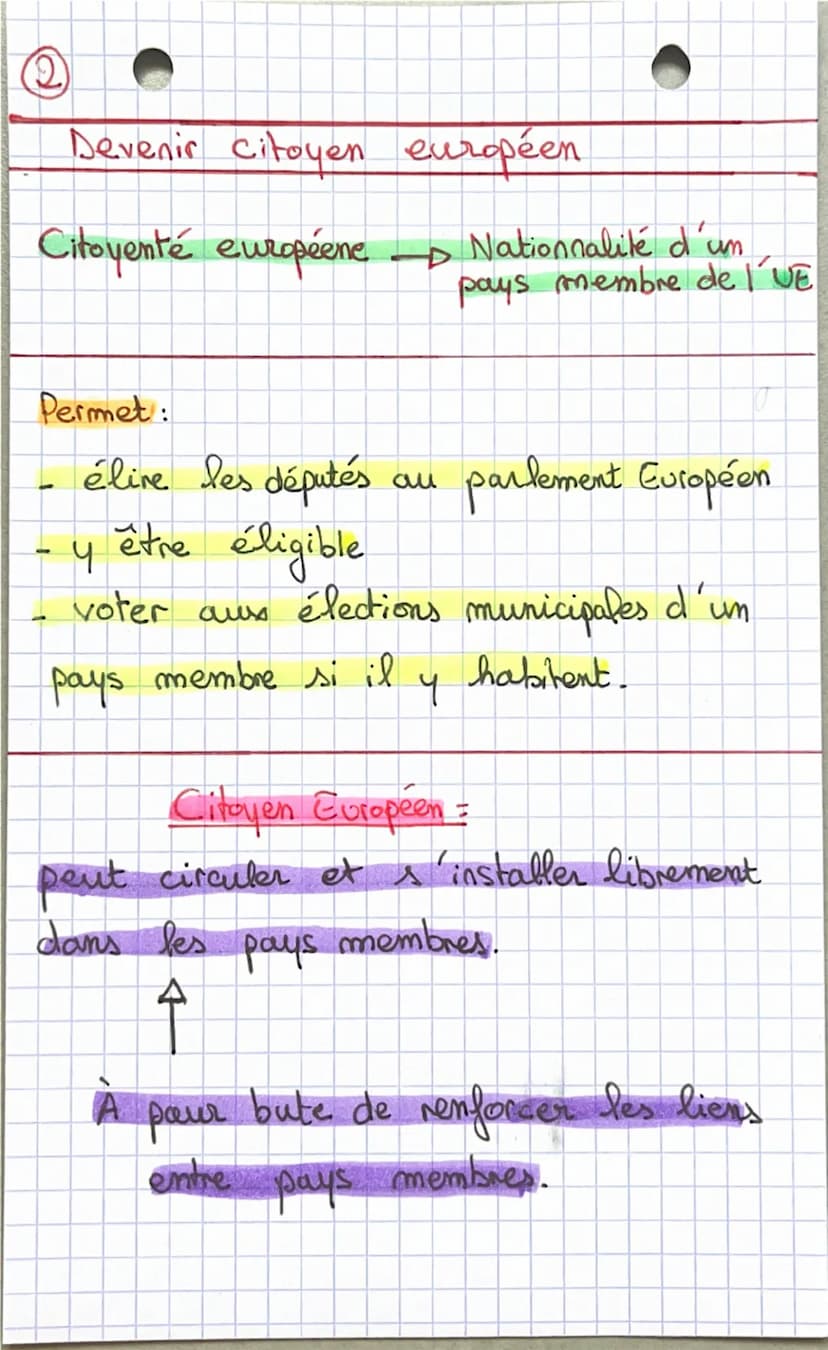 2
Devenir citoyen européen
Citoyenté européene → Nationnalité d'un
pays membre de l'UE
Permet :
- élire les députés au parlement Européen
- y être éligible
- voter aux élections municipales d'un
pays membre si il y habitent.
Citoyen Européen =
peut circuler et s'installer librement
dans les pays membres.
↑
À pour bute de renforcer les liens
entre pays membres.